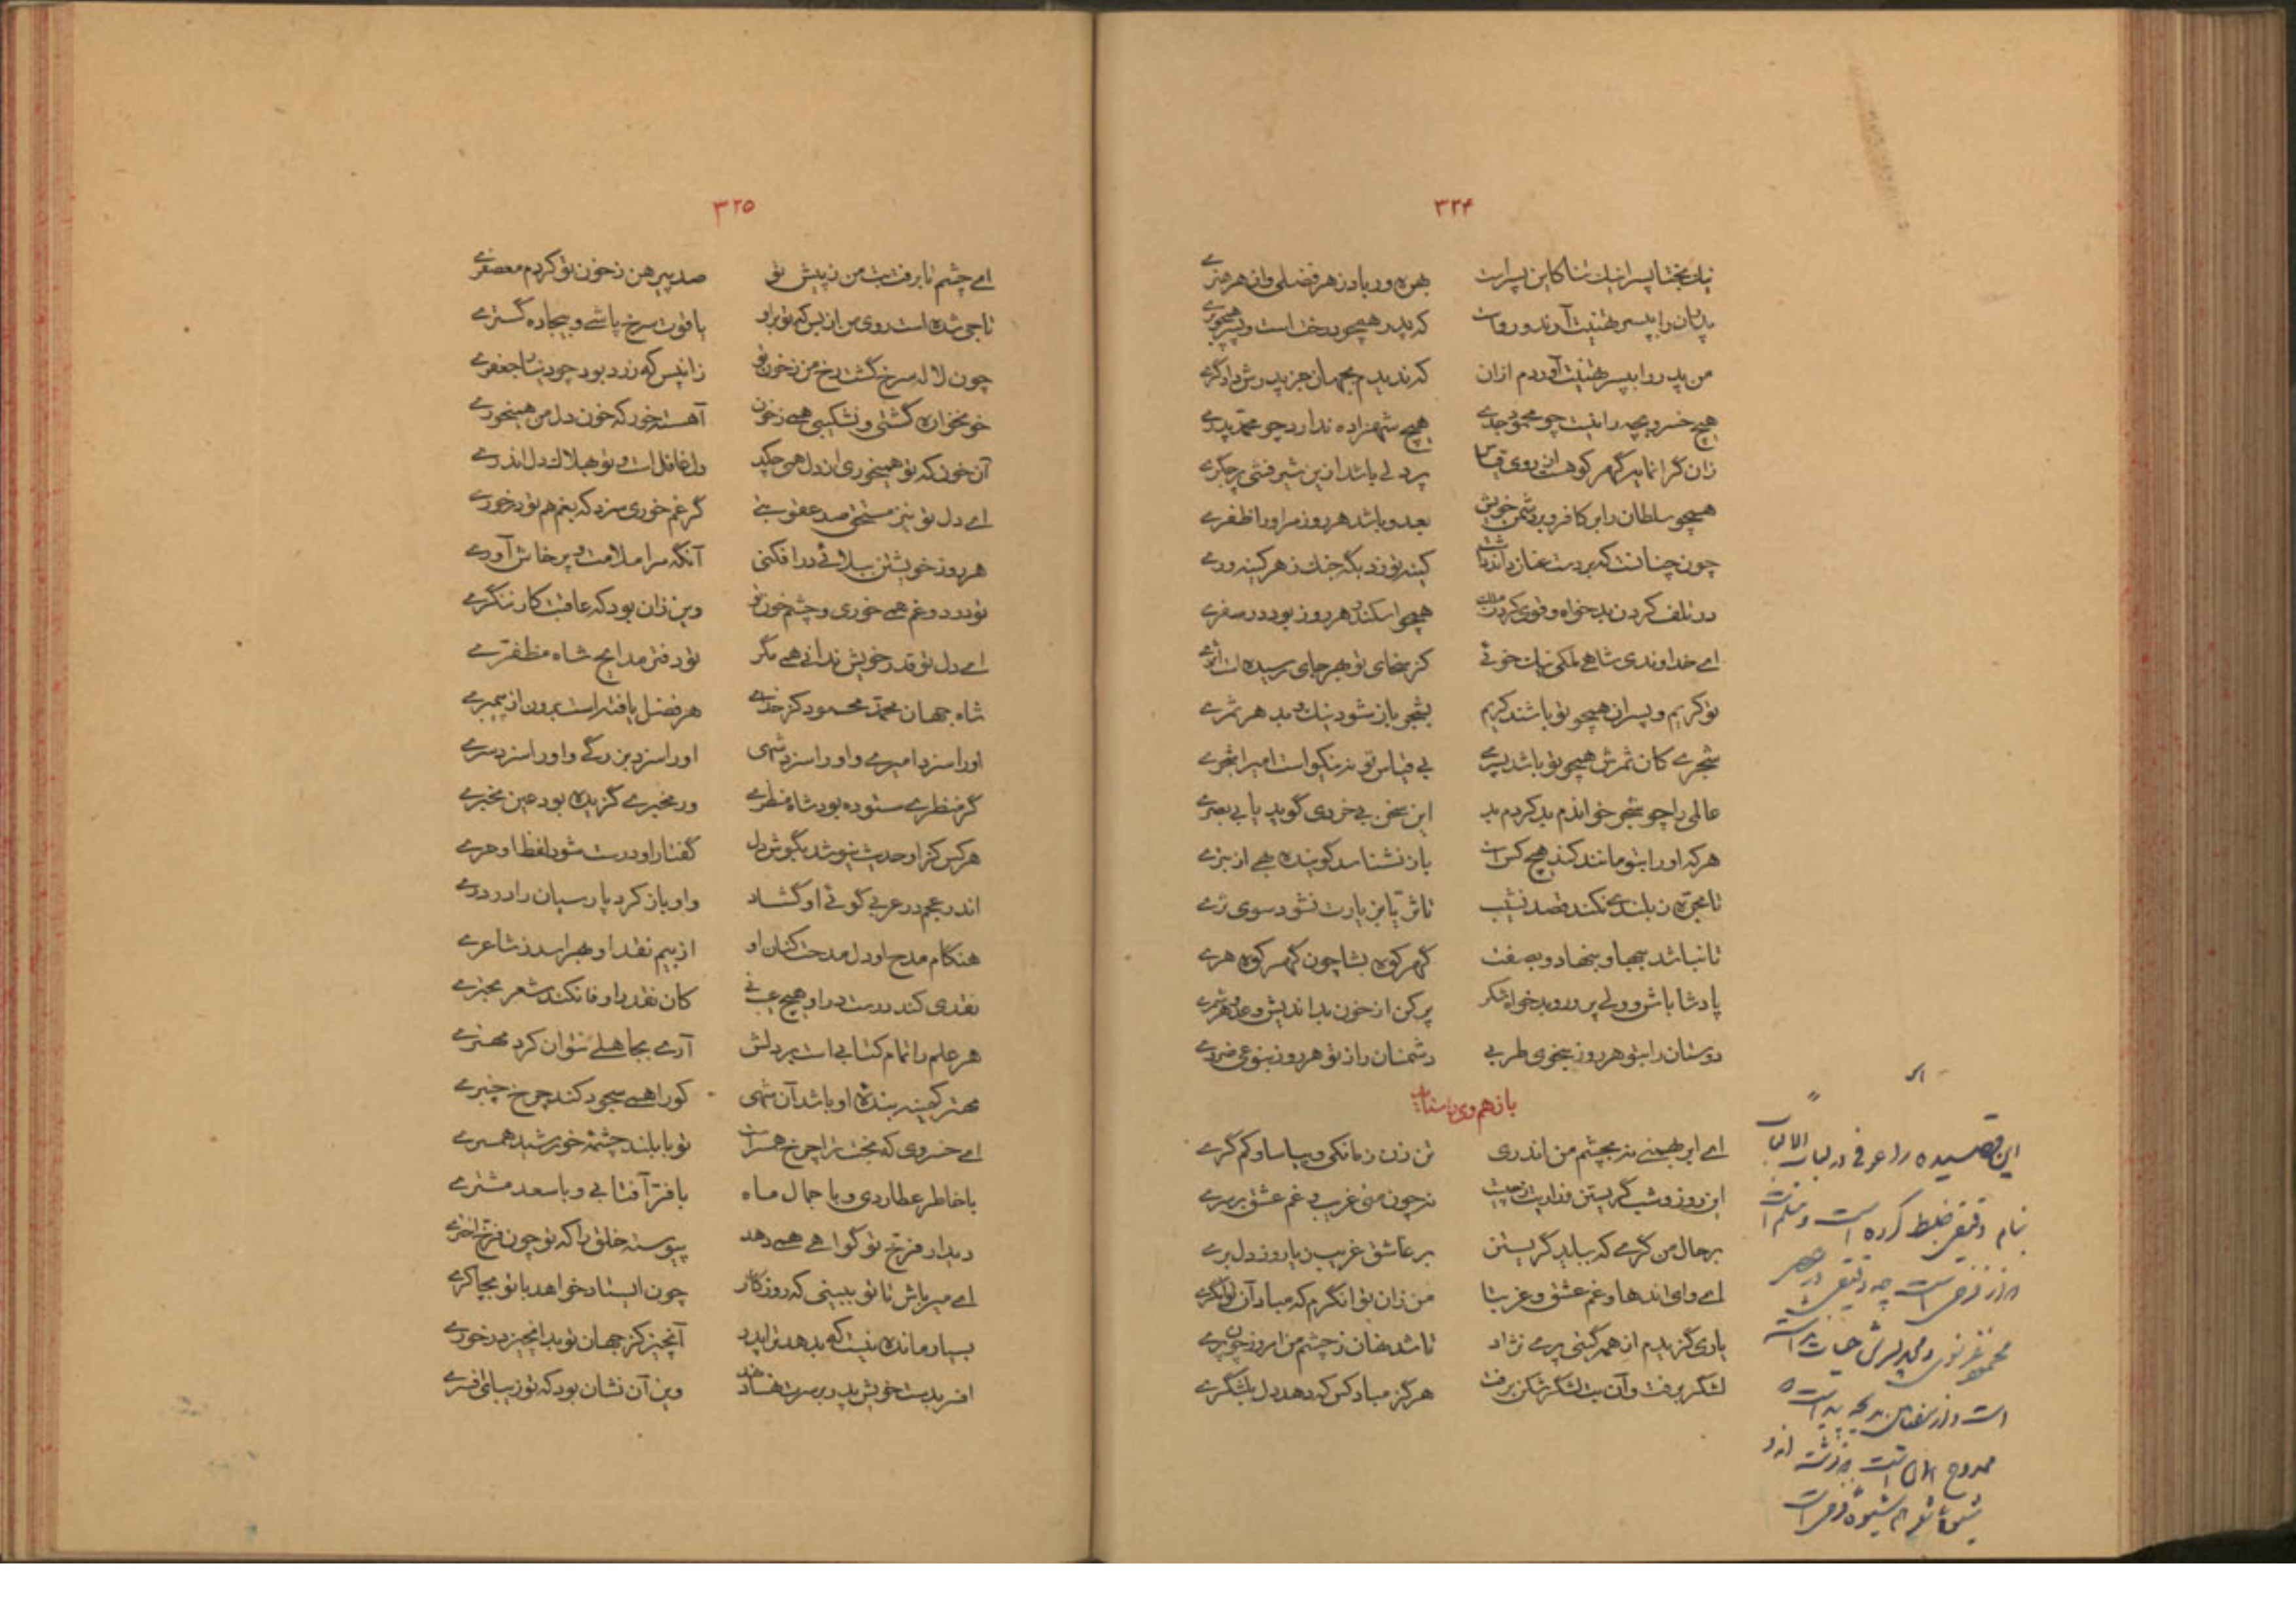 ۳۲۴
نیک بختا پسرا نیک تنا کاین پسر است بهره ور باد ز هر فضلی و از هر هنری
پدران را بپسر تهنیت آرند و رواست که پدر همچو درخت است و پسر همچو بری
من پدر را بپسر تهنیت آوردم ازان که ندیدم بجهان جز پدرش دادگری
هیچ خسرو بچه را نیست چو محمود جدی هیچ شهزاده ندارد چو محمد پدری
زان گرانمایه گهر کوهست از روی قیاس پر دلی باشد ازین شیر فشی پر جگری
همچو سلطان را بر کافر و بر دشمن خویش بعدو باشد هر روز مر او را ظفری
چون چنانست که بر دست عنان داند داشت کینه توزد بگه جنگ ز هر کینه وری
در تلف کردن بدخواه و قوی کردن ملک همچو اسکندر هر روز بود در سفری
ای خداوندی شاهی ملکی نیک خوئی کز سخای تو بهر جای رسیده است اثری
تو کریم و پسران همچو تو باشند کریم بشجر باز شود نیک و بد هر ثمری
شجری کان ثمرش همچو تو باشد پسری بی قیاس تو نه نیکو است امیرا شجری
عالمی را چو شجر خواندم بد کردم بد این سخن بی خردی گوید یا بی بصری
هر که او را بتو مانند کند هیچ کس است باز نشناسد گوینده بهی از بتری
تا مجره ز بلندی نکند قصد نشیب تا ثریا بزیارت نشود سوی ثری
تا نباشد ببها و بنهاد و بصفت گهر کوه بشا چون گهر کوه هری
پادشا باش و ولی پرور و بدخواه شکر پر کن از خون بداندیش و عدو هر شمری
دوستان را بتو هر روز بنحوی طربی دشمنان را ز تو هر روز بنوعی ضرری
باز هم وی راست
ای ابر بهمنی نه بچشم من اندری تن زن زمانکی و بیاسا و کم گری
این روز و شب گریستن زار زار چیست نه چون منی غریب و غم عشق بر سری
بر حال من گری که بباید گریستن بر عاشق غریب ز یار و ز دل بری
ای وای اندها و غم عشق و غربتا من زان توانگرم که مباد آن توانگری
یاری گزیدم از همه گیتی پری نژاد تا شد نهان ز چشم من امروز چون پری
لشکر برفت و آن بت لشکر شکن برفت هرگز مباد کس که دهد دل بلشگری
این قصیده را عوفی در لباب الالباب
بنام دقیقی ضبط کرده است و مسلم است
از فرخی است چه دقیقی در عصر
محمود غزنوی و محمد پسرش حیات نداشته
است
۳۲۵
ای چشم تا برفت بت من ز پیش تو صد پیرهن ز خون تو کردم معصفری
تاجی شده است روی من از بس که تو براو یاقوت سرخ پاشی و بیجاده گستری
چون لاله سرخ گشت رخ من ز خون تو زان پس که زرد بود چو دینار جعفری
خونخواره گشتی و نشکیبی همی ز خون آهسته خور که خون دل من همیخوری
آن خون که تو همیخوری از دل همی چکد دل غافل است و تو بهلاک دل اندری
ای دل تو نیز مستحق صد عقوبتی گر غم خوری سزد که بغم هم تو درخوری
هر روز خویشتن ببلائی در افکنی آنگه مرا ملامت و پرخاش آوری
تو درد و غم همی خوری و چشم خون تو وین زان بود که عاقبت کار ننگری
ای دل تو قدر خویش ندانی همی مگر تو دفتر مدایح شاه مظفری
شاه جهان محمد محمود کز خدای هر فضل یافته است برون از پیمبری
او را سزد امیری و او را سزد شهی او را سزد بزرگی و او را سزد سری
گر منظری ستوده بود شاه منظری ور مخبری گزیده بود عین مخبری
هر کس کز او حدیث نیوشد بگوش دل گفتار او درست شود لفظ او دری
اندر عجم در عربی گوئی او گشاد واو باز کرد پارسیان را در دری
هنگام مدح او دل مدحت کنان او از بیم نقد او بهراسد ز شاعری
نقدی کند درست و در او هیچ عیب نی کان نقد را وفا نکند شعر بحتری
هر علم را تمام کتابی است بر دلش آری بجاهلی نتوان کرد مهتری
مهتر کهینه بنده او باشد آن شهی کو را همی سجود کند چرخ چنبری
ای خسروی که بخت ترا چرخ همسر است تو با بلند چشمه خورشید همسری
با خاطر عطاردی و با جمال ماه با فر آفتابی و با سعد مشتری
دیدار فرخ تو گواهی همی دهد پیوسته خلق را که تو چون فرخ اختری
ای میر باش تا تو ببینی که روزگار چون ایستاد خواهد با تو بچاکری
بسیار مانده نیست که بدهد ترا پدر آنچیز کز جهان تو بدانچیز درخوری
افسر بدست خویش پدر بر سرت نهاد وین آن نشان بود که تو زیبای افسری